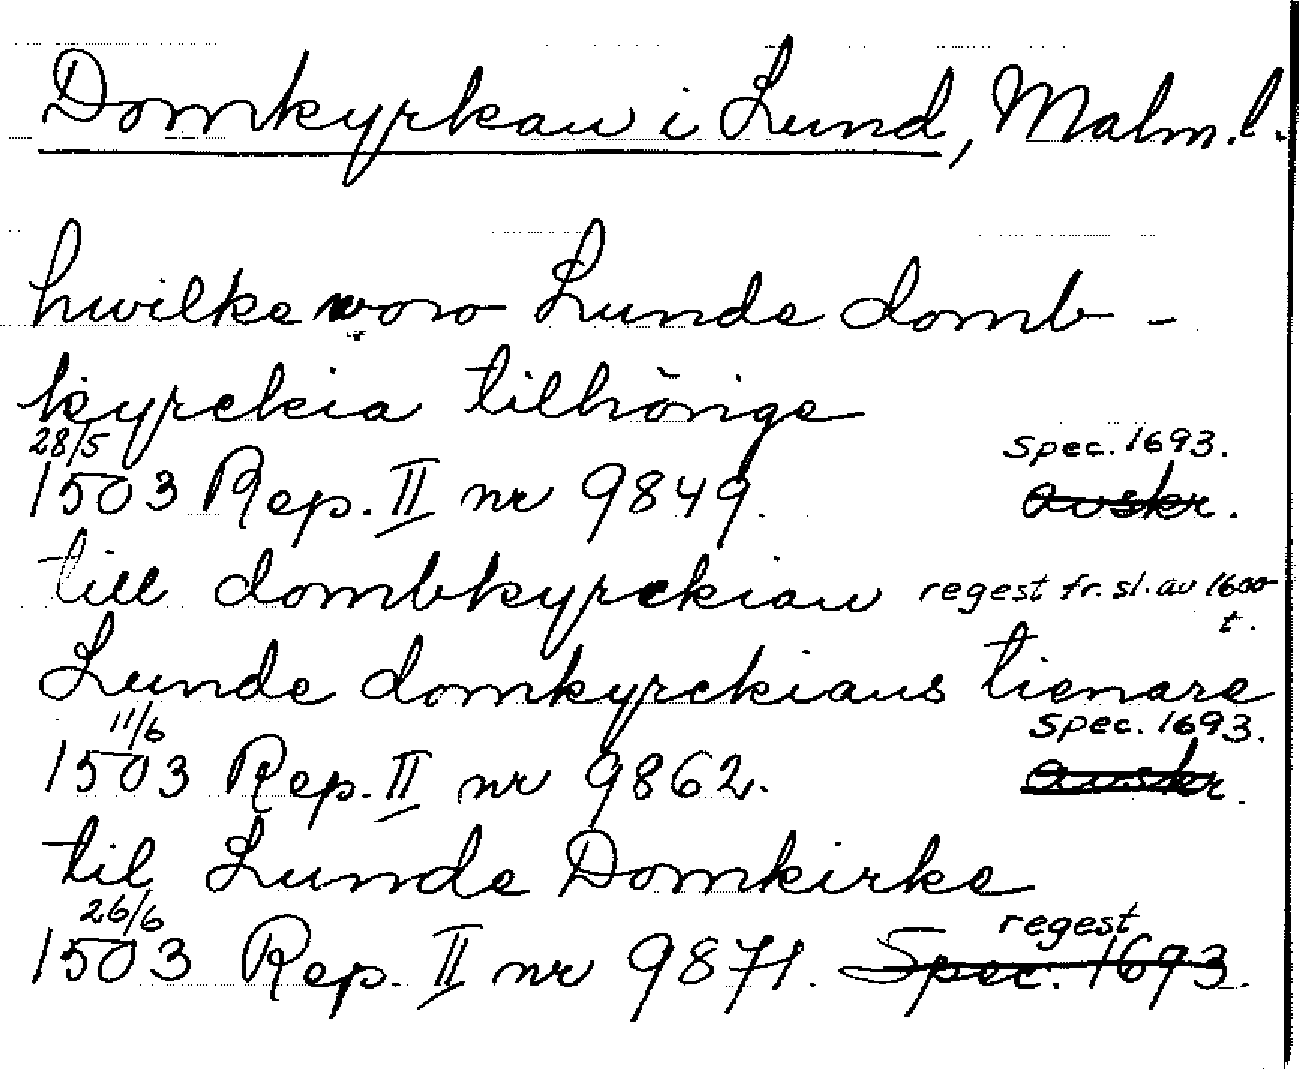 Domkyrkan i Lund, Malm.l.
hwilke woro Lunde domb-
kyrckia tilhörige
28/5 spec. 1693.
1503 Rep. II nr 9849. avskr.
till dombkyrckian regest fr. sl. av 1600
t.
Lunde domkyrckians tienare
11/6 spec. 1693.
1503 Rep. II nr 9862. avskr.
til Lunde Domkirke
26/6 regest
1503 Rep. II nr 9871. Spec. 1693.